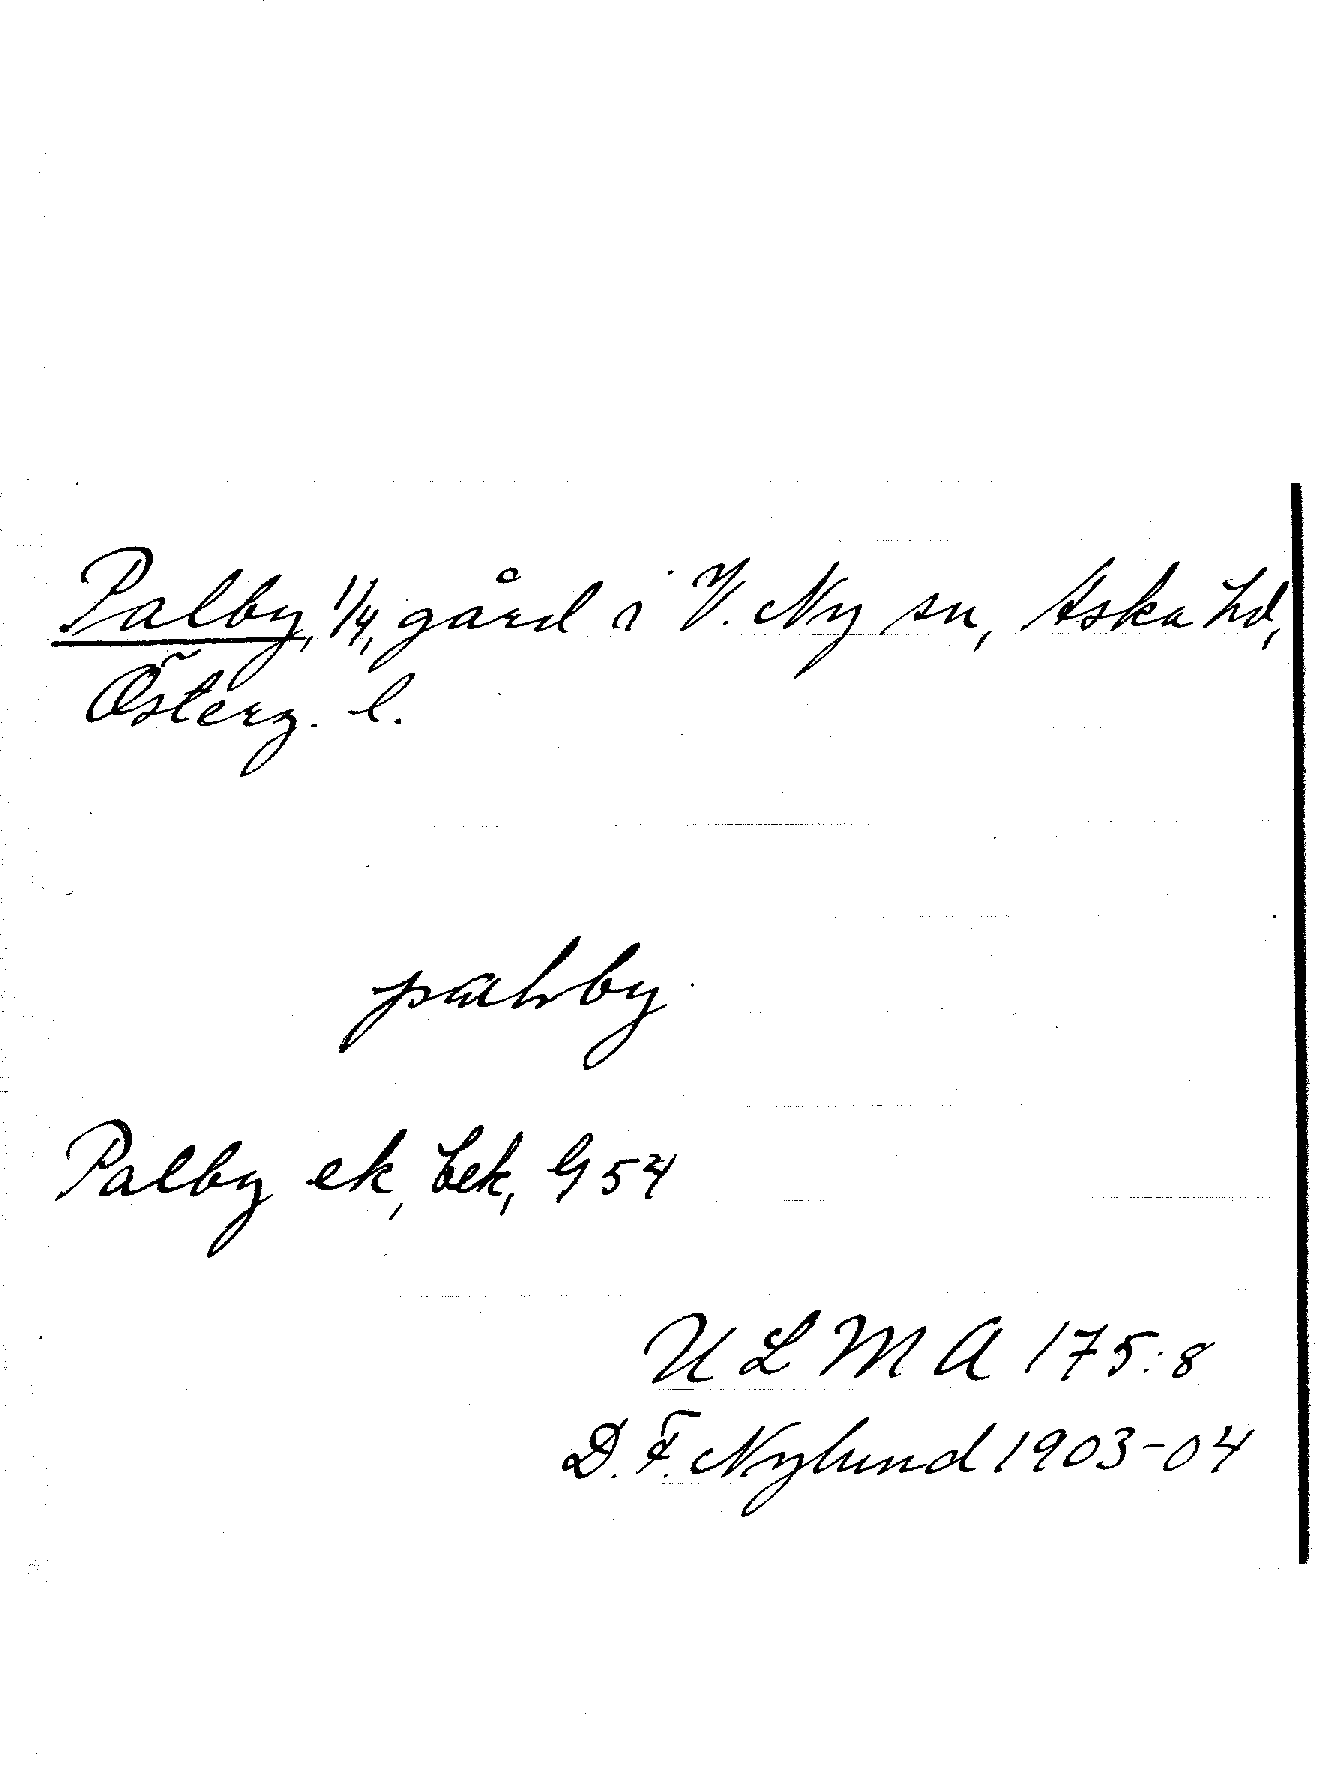 Palby, 1/4, gård i V. Ny sn, Aska hd,
Österg. l.
Palby ek, bek, G 54
U L M A 175:8
D. F. Nylund 1903-04